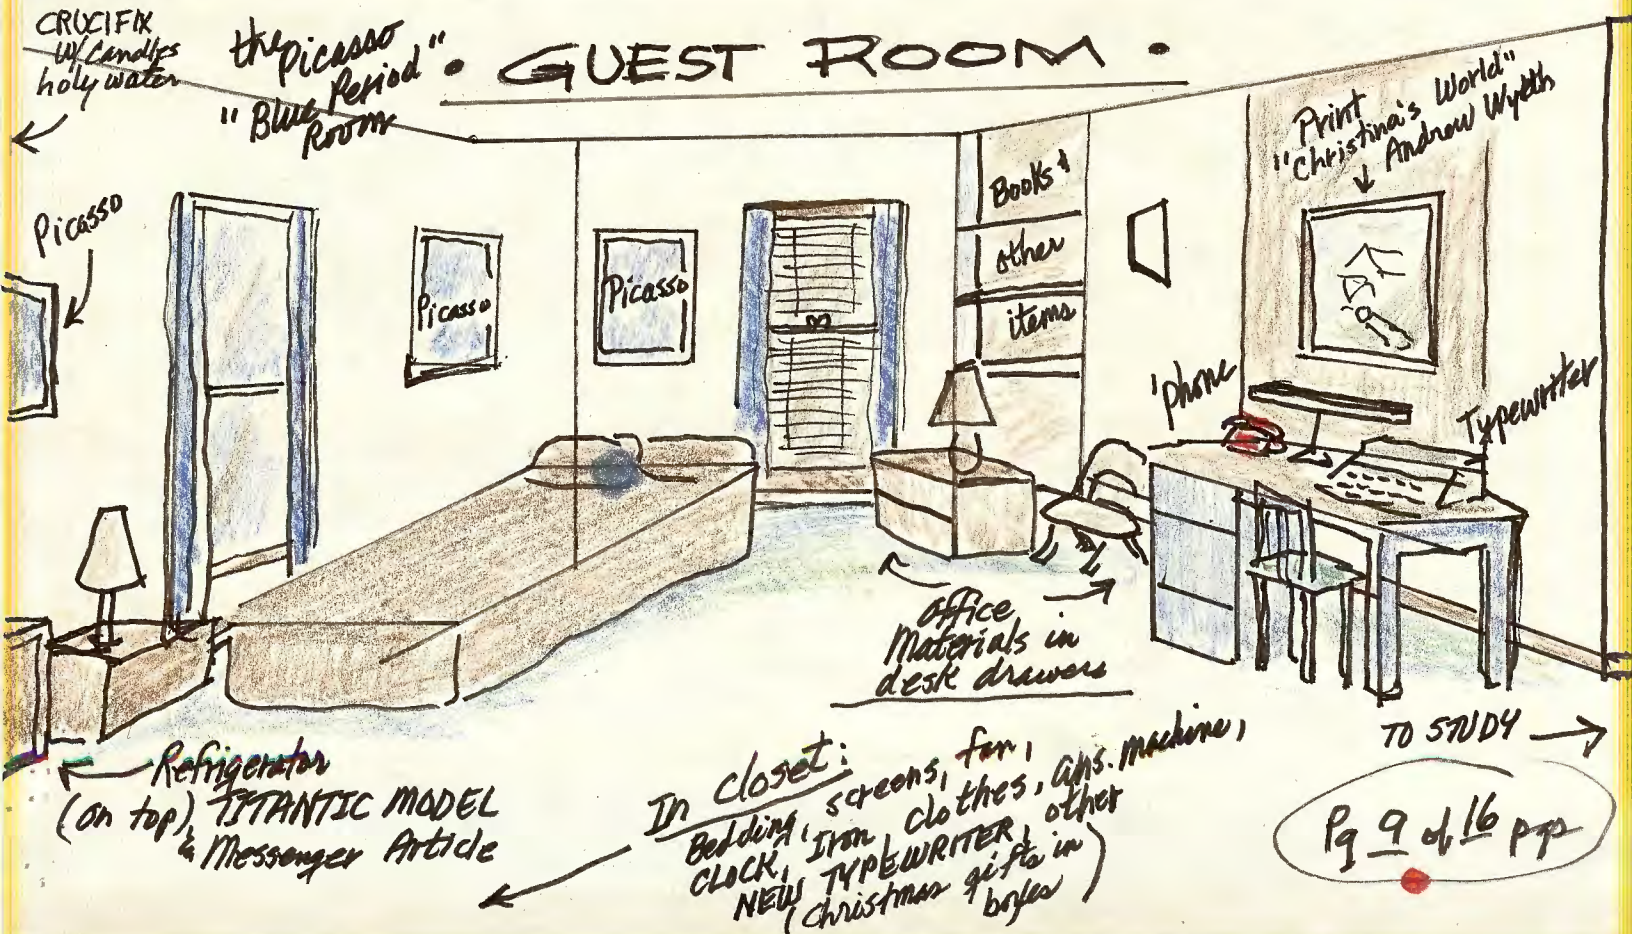 CRUCIFIX
W/ Candles
holy water
the Picasso
"Blue Period"
Room
• GUEST ROOM •
Print
"Christina's World"
Andrew Wyeth
Picasso
Picasso
Picasso
Books &
other
items
'phone
Typewriter
office
Materials in
desk drawers
TO STUDY
Refrigerator
(on top) TITANTIC MODEL
& Messenger Article
In closet:
Bedding, screens, fan,
CLOCK, Iron, clothes, ans. machine,
NEW TYPEWRITER, other
(Christmas gifts in
boxes)
Pg 9 of 16 pgs